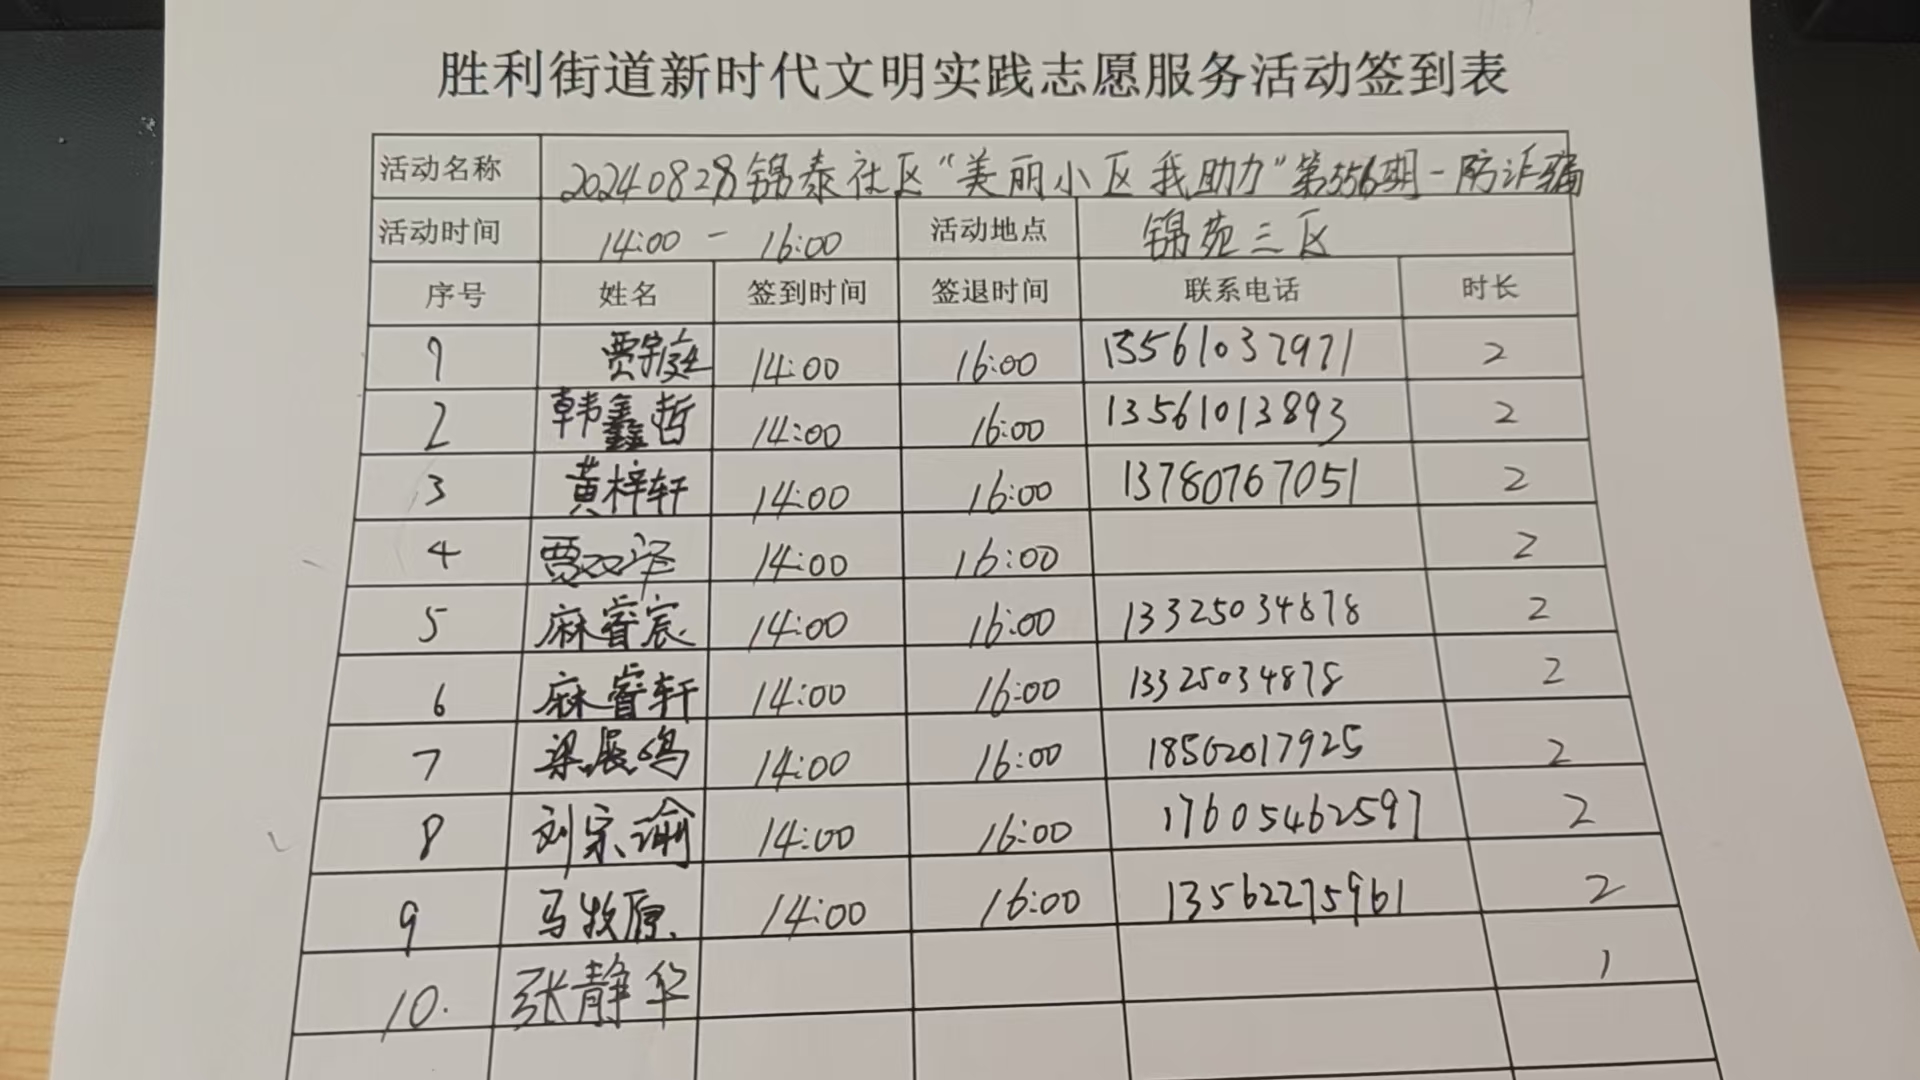 胜利街道新时代文明实践志愿服务活动签到表
活动名称 20240828锦泰社区“美丽小区 我助力”第356期-防诈骗
活动时间 14:00 - 16:00 活动地点 锦苑三区
序号 姓名 签到时间 签退时间 联系电话 时长
1 贾宇庭 14:00 16:00 13561032971 2
2 韩鑫哲 14:00 16:00 13561013893 2
3 黄梓轩 14:00 16:00 13780767051 2
4 贾双泽 14:00 16:00 2
5 麻睿宸 14:00 16:00 13325034878 2
6 麻睿轩 14:00 16:00 13325034878 2
7 梁展鸣 14:00 16:00 18562017925 2
8 刘宗谕 14:00 16:00 17605462597 2
9 马牧原 14:00 16:00 13562275961 2
10. 张静华 1